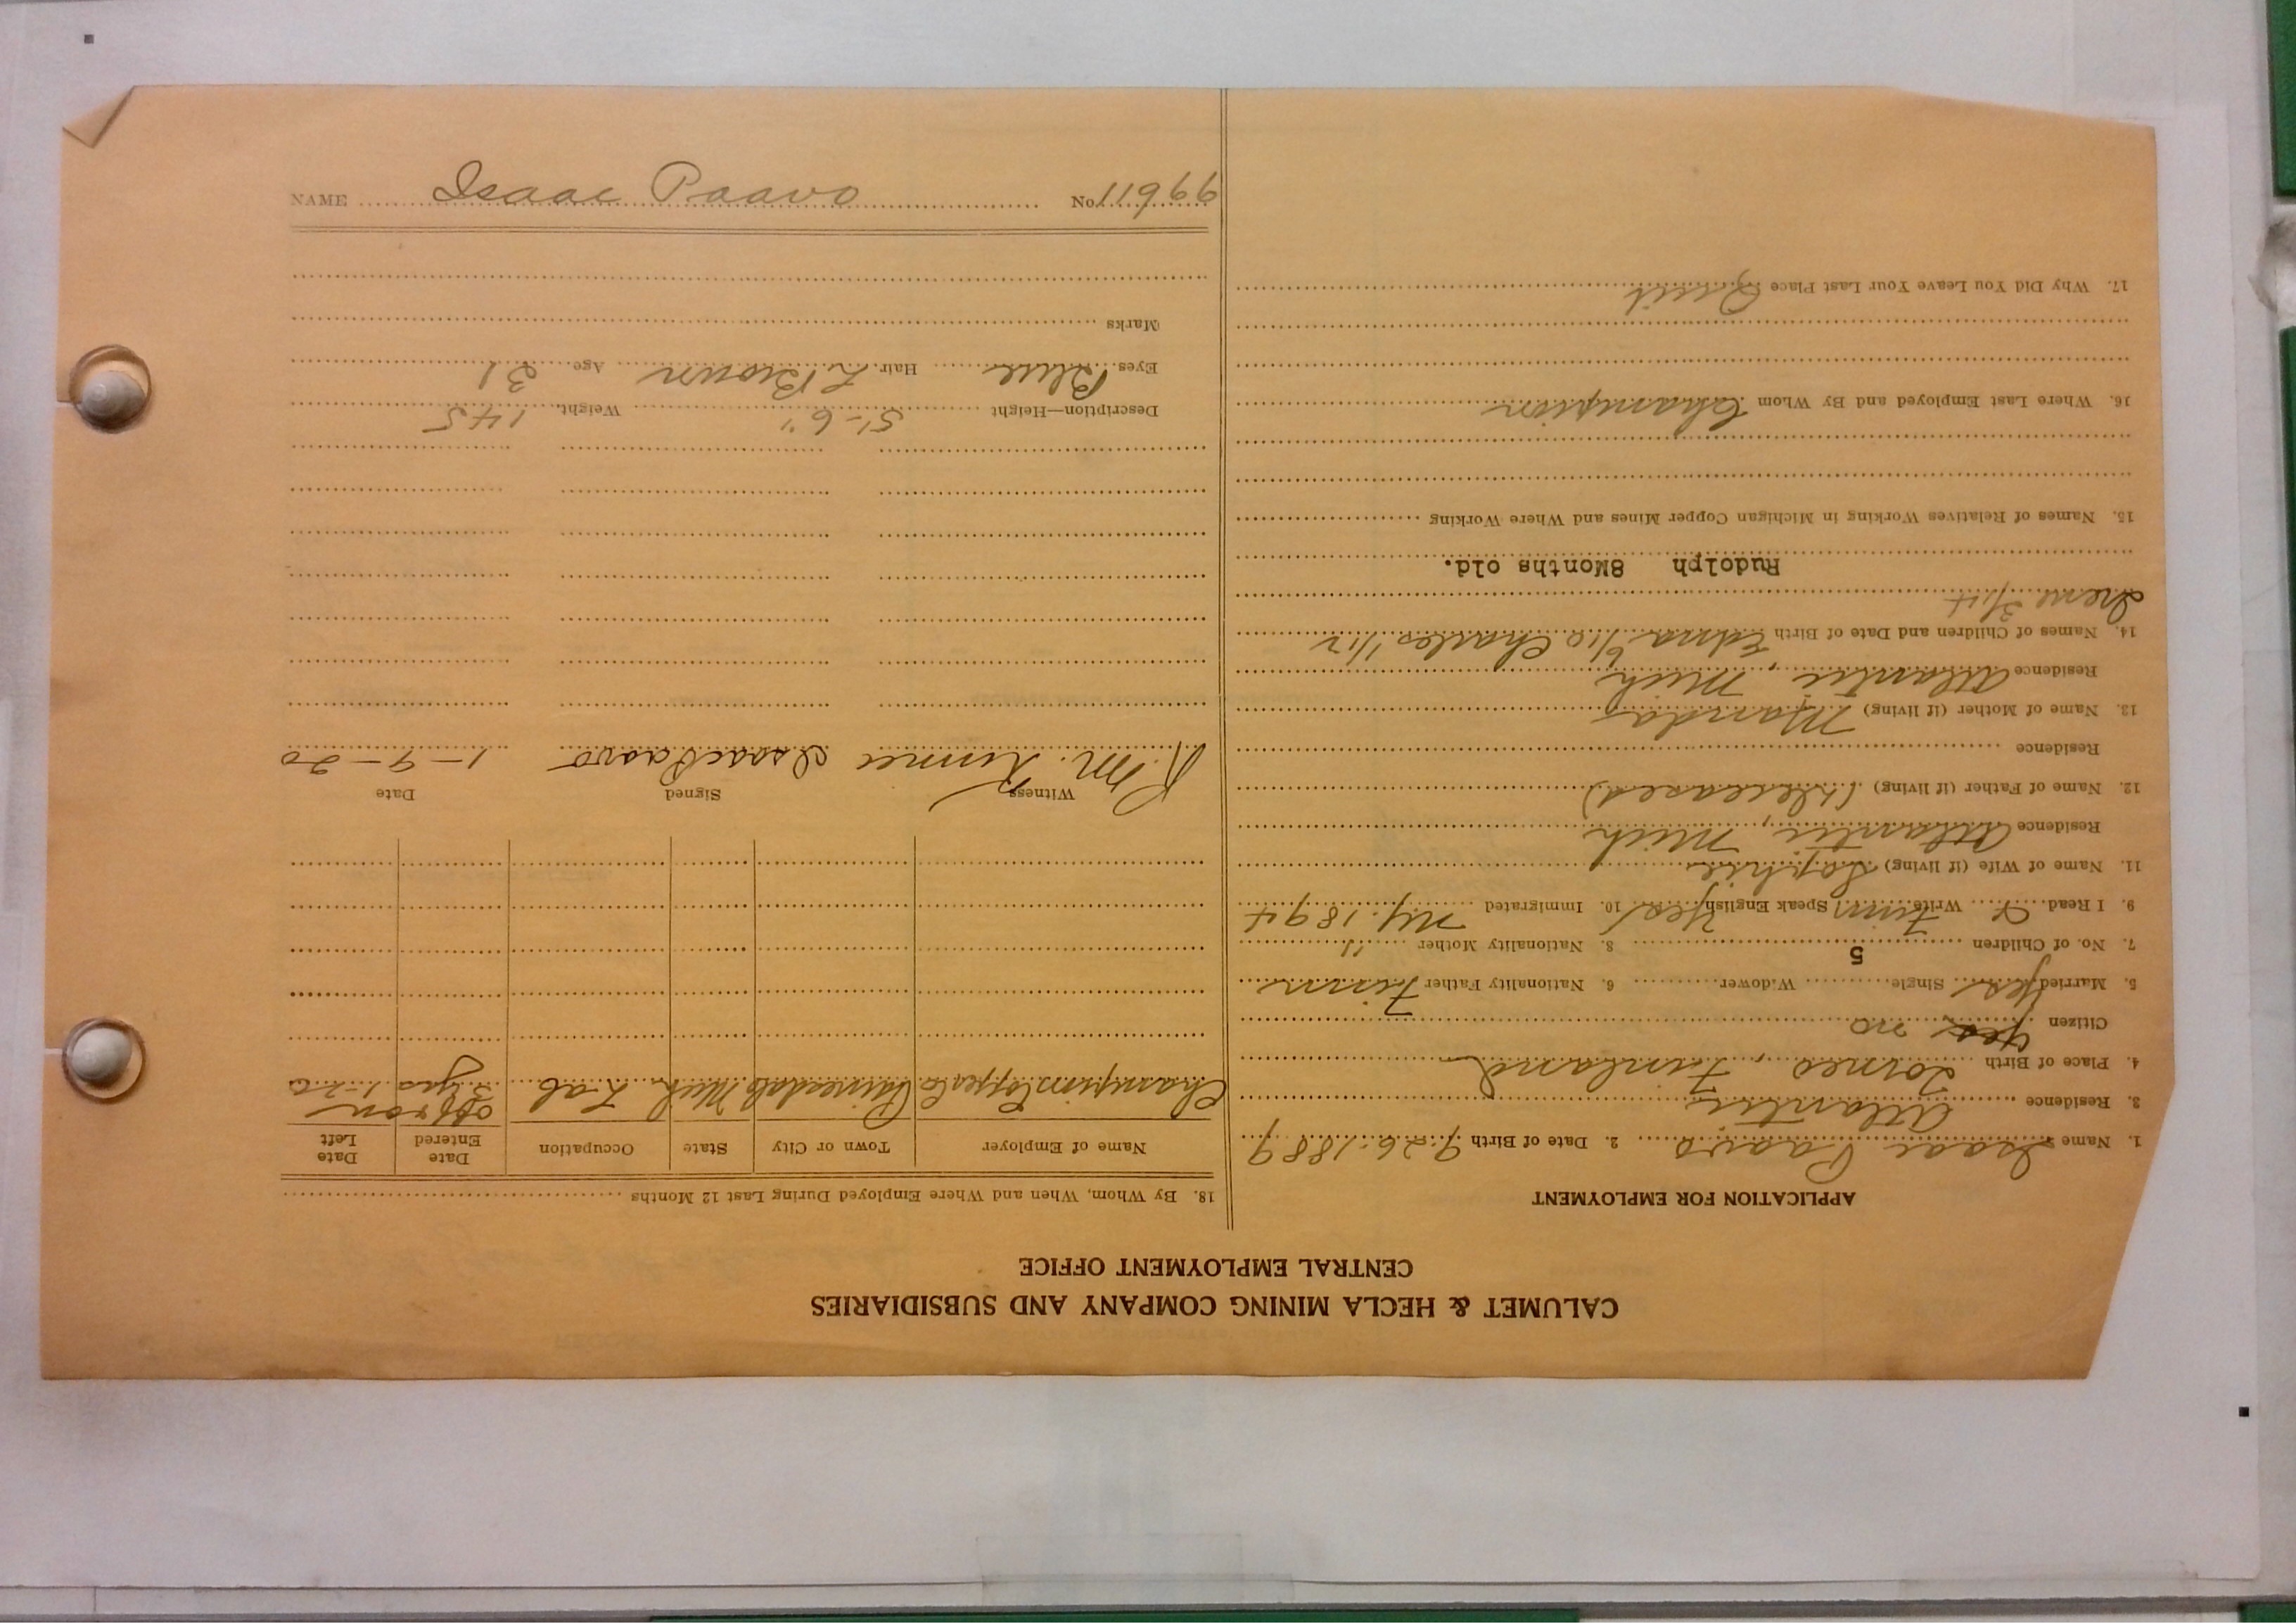 CALUMET & HECLA MINING COMPANY AND SUBSIDIARIES
CENTRAL EMPLOYMENT OFFICE
APPLICATION FOR EMPLOYMENT
1. Name Isaac Paavo 2. Date of Birth 9-26-1889
3. Residence Atlantic
4. Place of Birth Torneo, Finland
Citizen yes no
5. Married Yes Single Widower 6. Nationality Father Finn
7. No. of Children 5 8. Nationality Mother "
9. I Read & Write Finn Speak English Yes 10. Immigrated My. 1894
11. Name of Wife (if living) Sophie
Residence Atlantic, Mich
12. Name of Father (if living) (deceased)
Residence
13. Name of Mother (if living) Manda
Residence Atlantic, Mich
14. Names of Children and Date of Birth Edna 6/10 Charles 1/12
Irene 3/14
Rudolph 8Months old.
15. Names of Relatives Working in Michigan Copper Mines and Where Working
16. Where Last Employed and By Whom Champion
17. Why Did You Leave Your Last Place Quit
18. By Whom, When and Where Employed During Last 12 Months
Name of Employer Town or City State Occupation Date Entered Date Left
off & on
Champion Copper Co Painesdale Mich. Lab 3 yrs 1-20
Witness Signed Date
R.M. Isaac Paavo 1-9-20
Description—Height 5'-6" Weight 145
Eyes Blue Hair L. Brown Age 31
Marks
NAME Isaac Paavo No. 11966